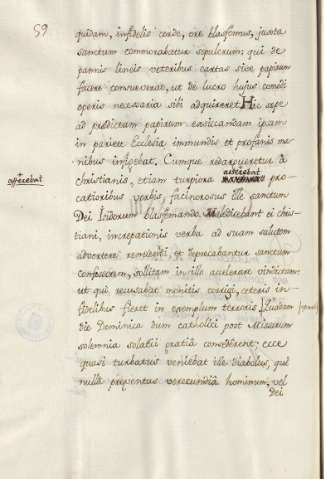 59
quidam, infidelis corde, ore blasfemus, juxta
sanctum commorabatur sepulcrum; qui de
pannis lineis veteribus cartas sive papirum
facere consueverat, ut de lucro hujus modi
operis necessaria sibi adquireret. Hic sepe
ad predictum papirum exsiccandam ipsam
in pariete Ecclesiæ immundis et profanis ma-
nibus infigebat. Cumque redargueretur a
asserebat
asserebat
christianis, etiam turpiora pro-
cationibus verbis, facinorosus ille sanctum
Dei Isidorum blasfemando. Dicebant ei chris-
tiani, increpationis verba ad suam salutem
advertere renuenti, et deprecabantur sanctum
confesorem, sollitam in ille accelerare vindictam:
ut qui recusabat monitis corrigi, ceteris in-
fidelibus fieret in exemplum terroris. Quadam
die Dominica dum catholici post Missarum
solemnia solatii gratia considerent; ecce
quasi turbatus veniebat ille diabolus, qui
nulla preventus verecundia hominum, vel
Dei